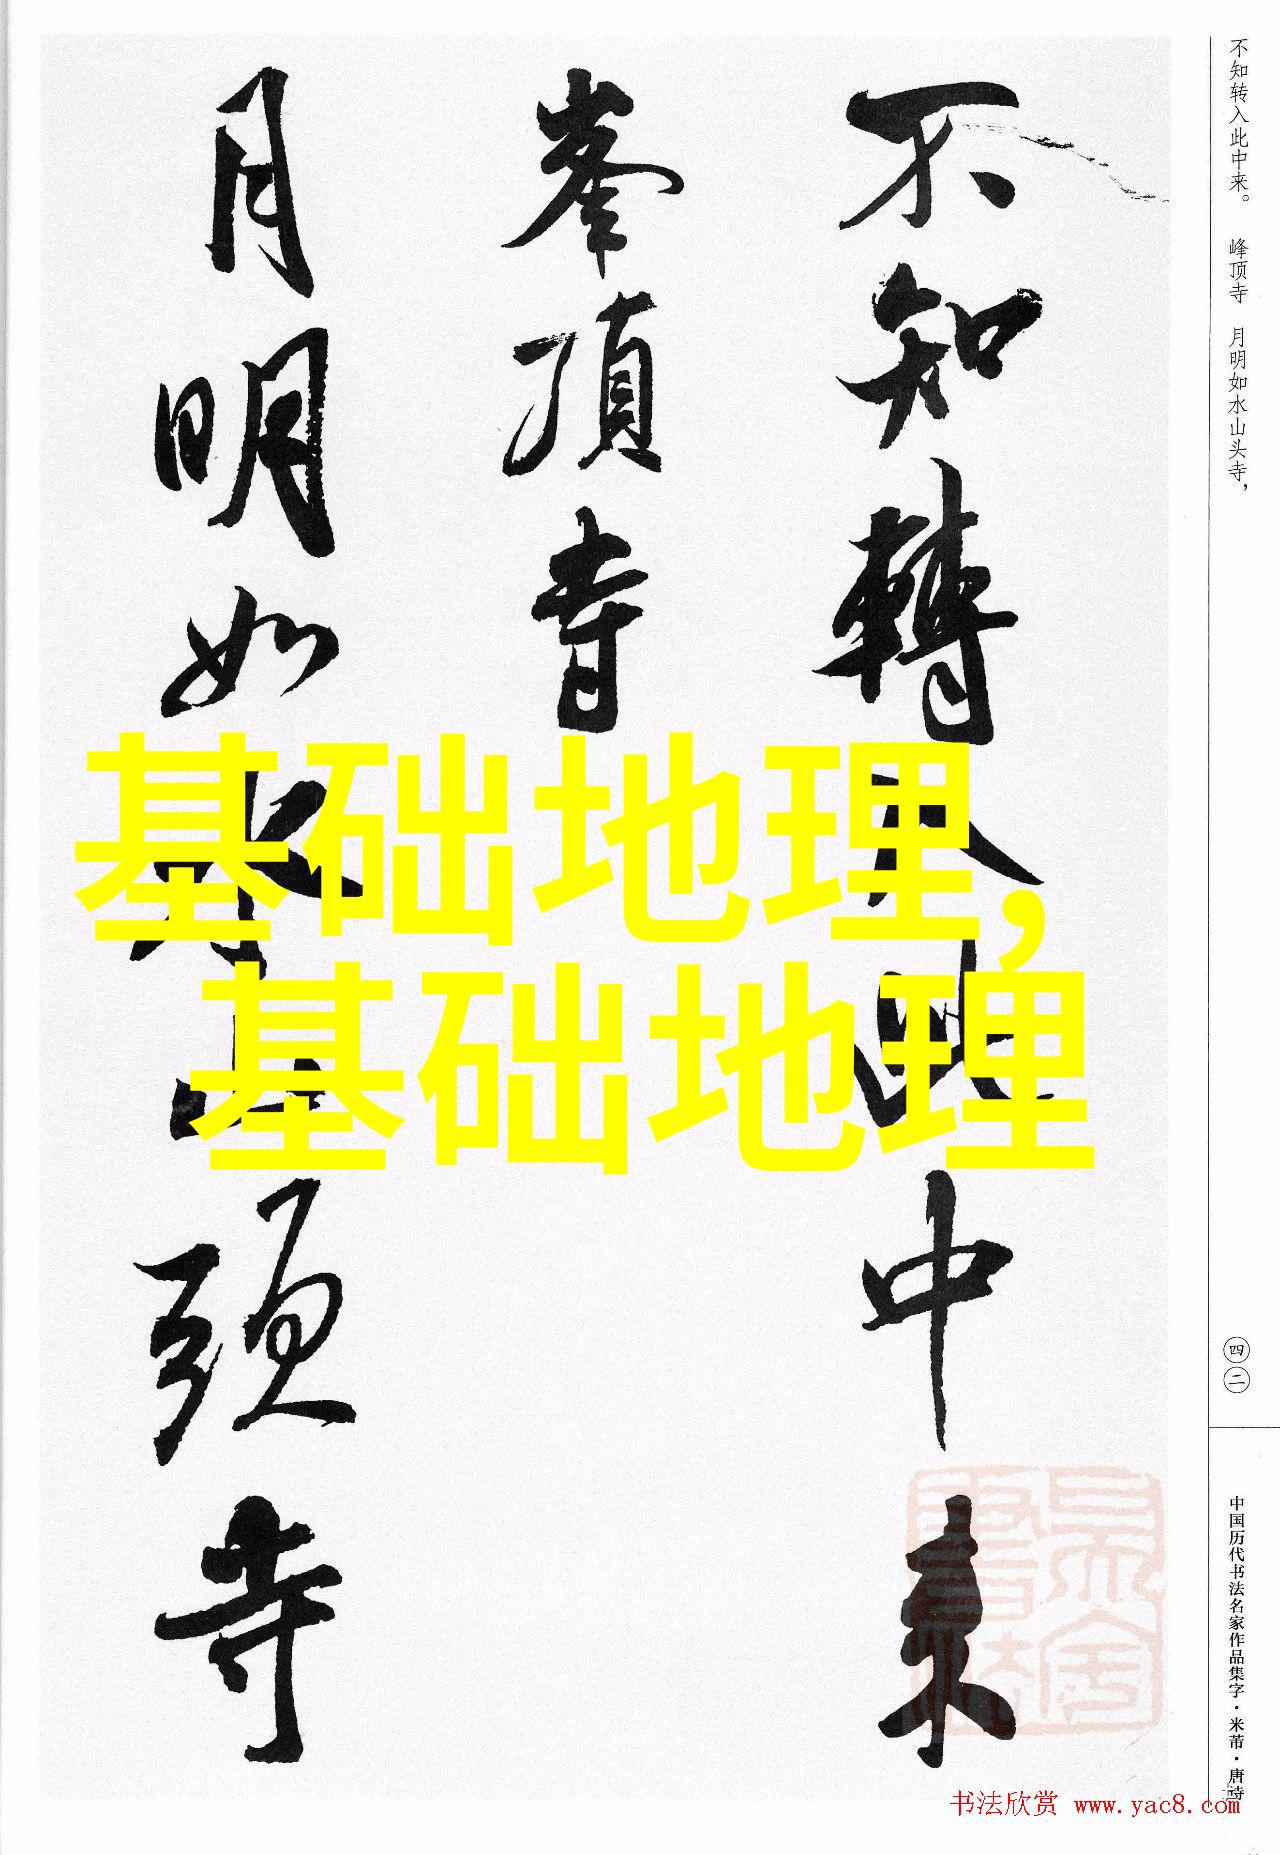 不知转入此中来。 峰顶寺 月明如水山头寺,
不知轉入此中来
峯頂寺
月明如水山頭寺
基础地理,
基础地理
四二
中国历代书法名家作品集字·米芾·唐诗
书法欣赏 www.yac8.com